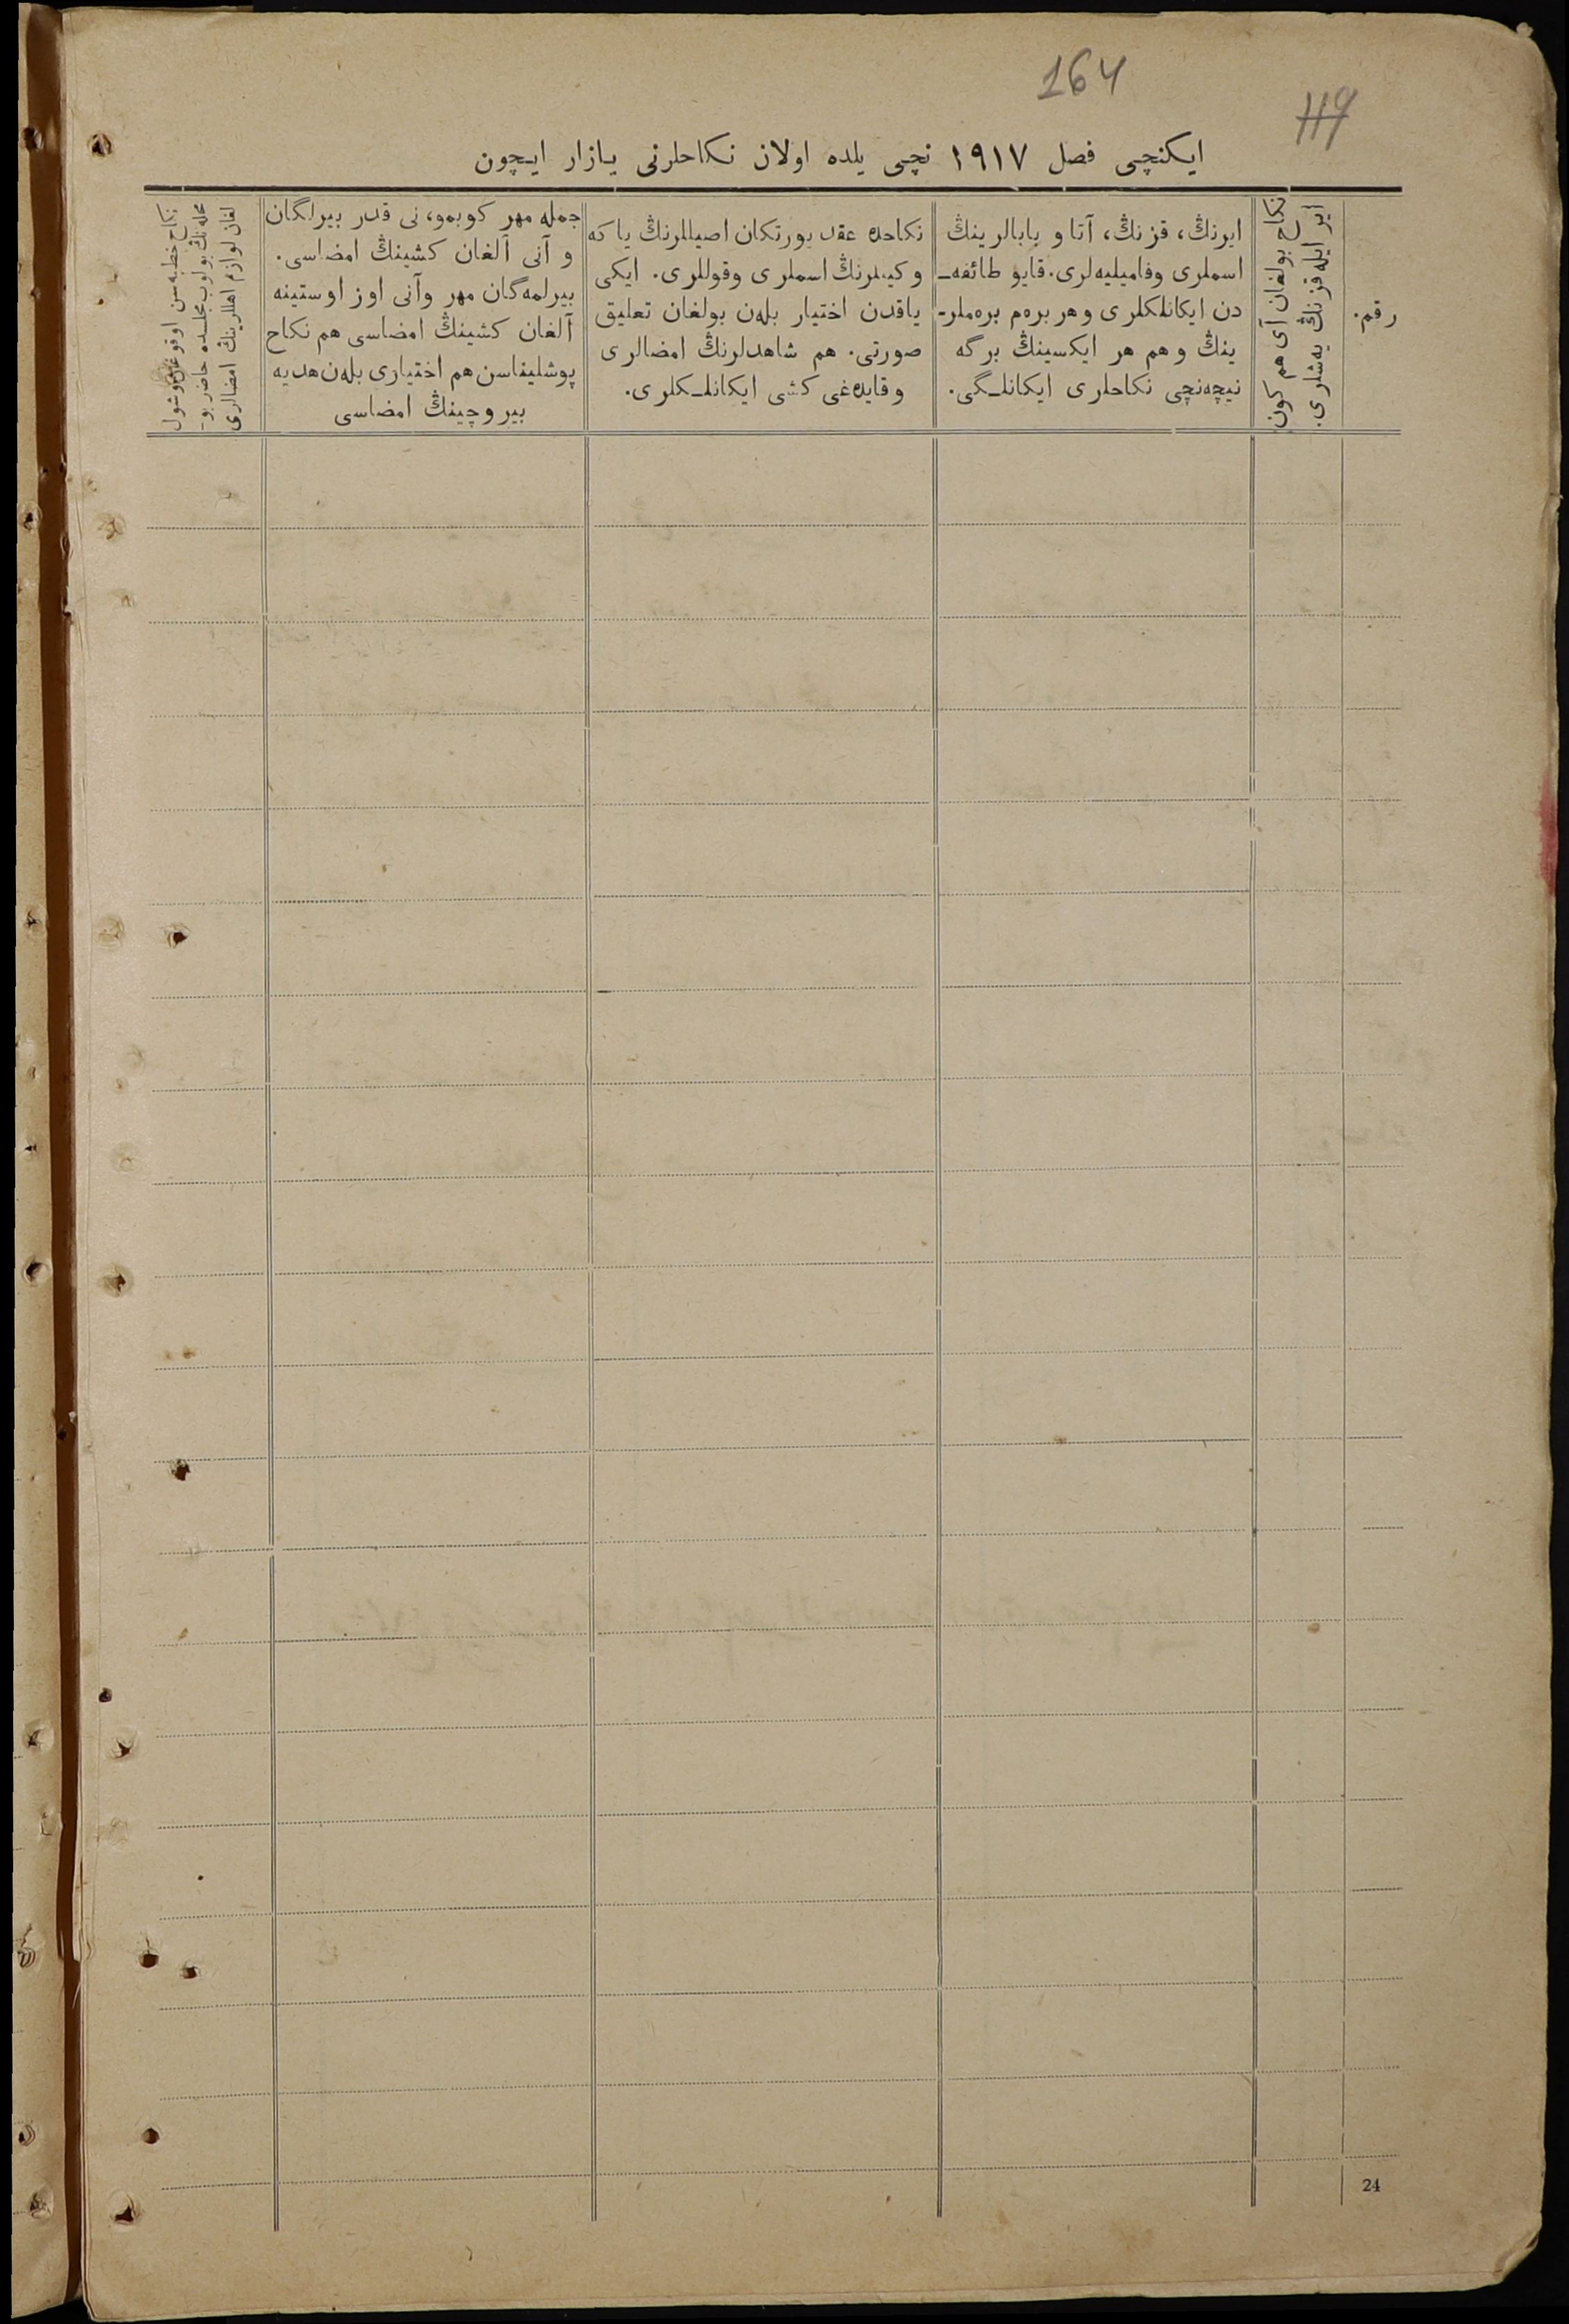 164
119
ایکنچی فصل ١٩١٧ نچی یلده اولان نکاحلرنی یازار ایچون
رقم.
نکاح بولغان آی هم کون
ایر ایله قزنڭ یەشلری.
ایرنڭ، قزنڭ، آتا و بابالرینڭ
اسملری وفامیلیەلری. قایو طائفەـ
دن ایکانلکلری وهر برەم برەملرـ
ینڭ وهم هر ایکسینڭ برگه
نیچەنچی نکاحلری ایکانلـگی.
نکاحدە عقد یورتکان اصیللرنڭ یاکه
وکیلرنڭ اسملری وقوللری. ایکی
یاقدن اختیار بلەن بولغان تعلیق
صورتی. هم شاهدلرنڭ امضالری
وقایدەغی کشی ایکانلـکلری.
جمله مهر کوبمو، نی قدر بیرلگان
و آنی آلغان کشینڭ امضاسی.
بیرلمەگان مهر وآنی اوز اوستینه
آلغان کشینڭ امضاسی هم نکاح
پوشلیناسن هم اختیاری بلەن هدیه
بیروچینڭ امضاسی
نکاح خطبەسن اوقوغان وشول
محلەنڭ بولوب مجلسدە حاضر بوـ
لغان لوازم اهللرینڭ امضالری
24